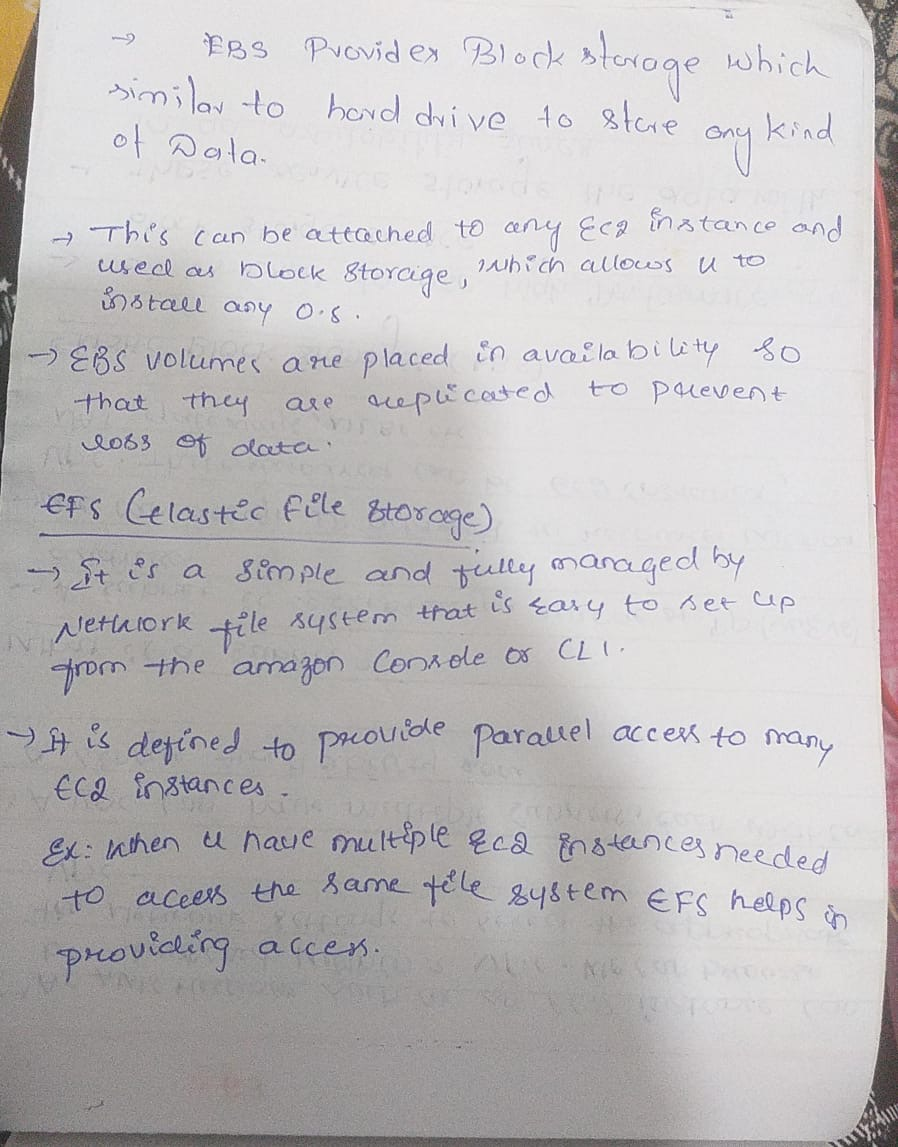 → EBS Provides Block storage which
similar to hard drive to store any kind
of Data.
→ This can be attached to any Ec2 instance and
used as block storage, which allows u to
install any O.S.
→ EBS volumes are placed in availability so
that they are replicated to prevent
loss of data.
EFS (elastic file storage)
→ It is a simple and fully managed by
Network file system that is easy to set up
from the amazon Console or CLI.
→ It is defined to provide parallel access to many
EC2 instances.
Ex: When u have multiple Ec2 instances needed
to access the same file system EFS helps in
providing access.